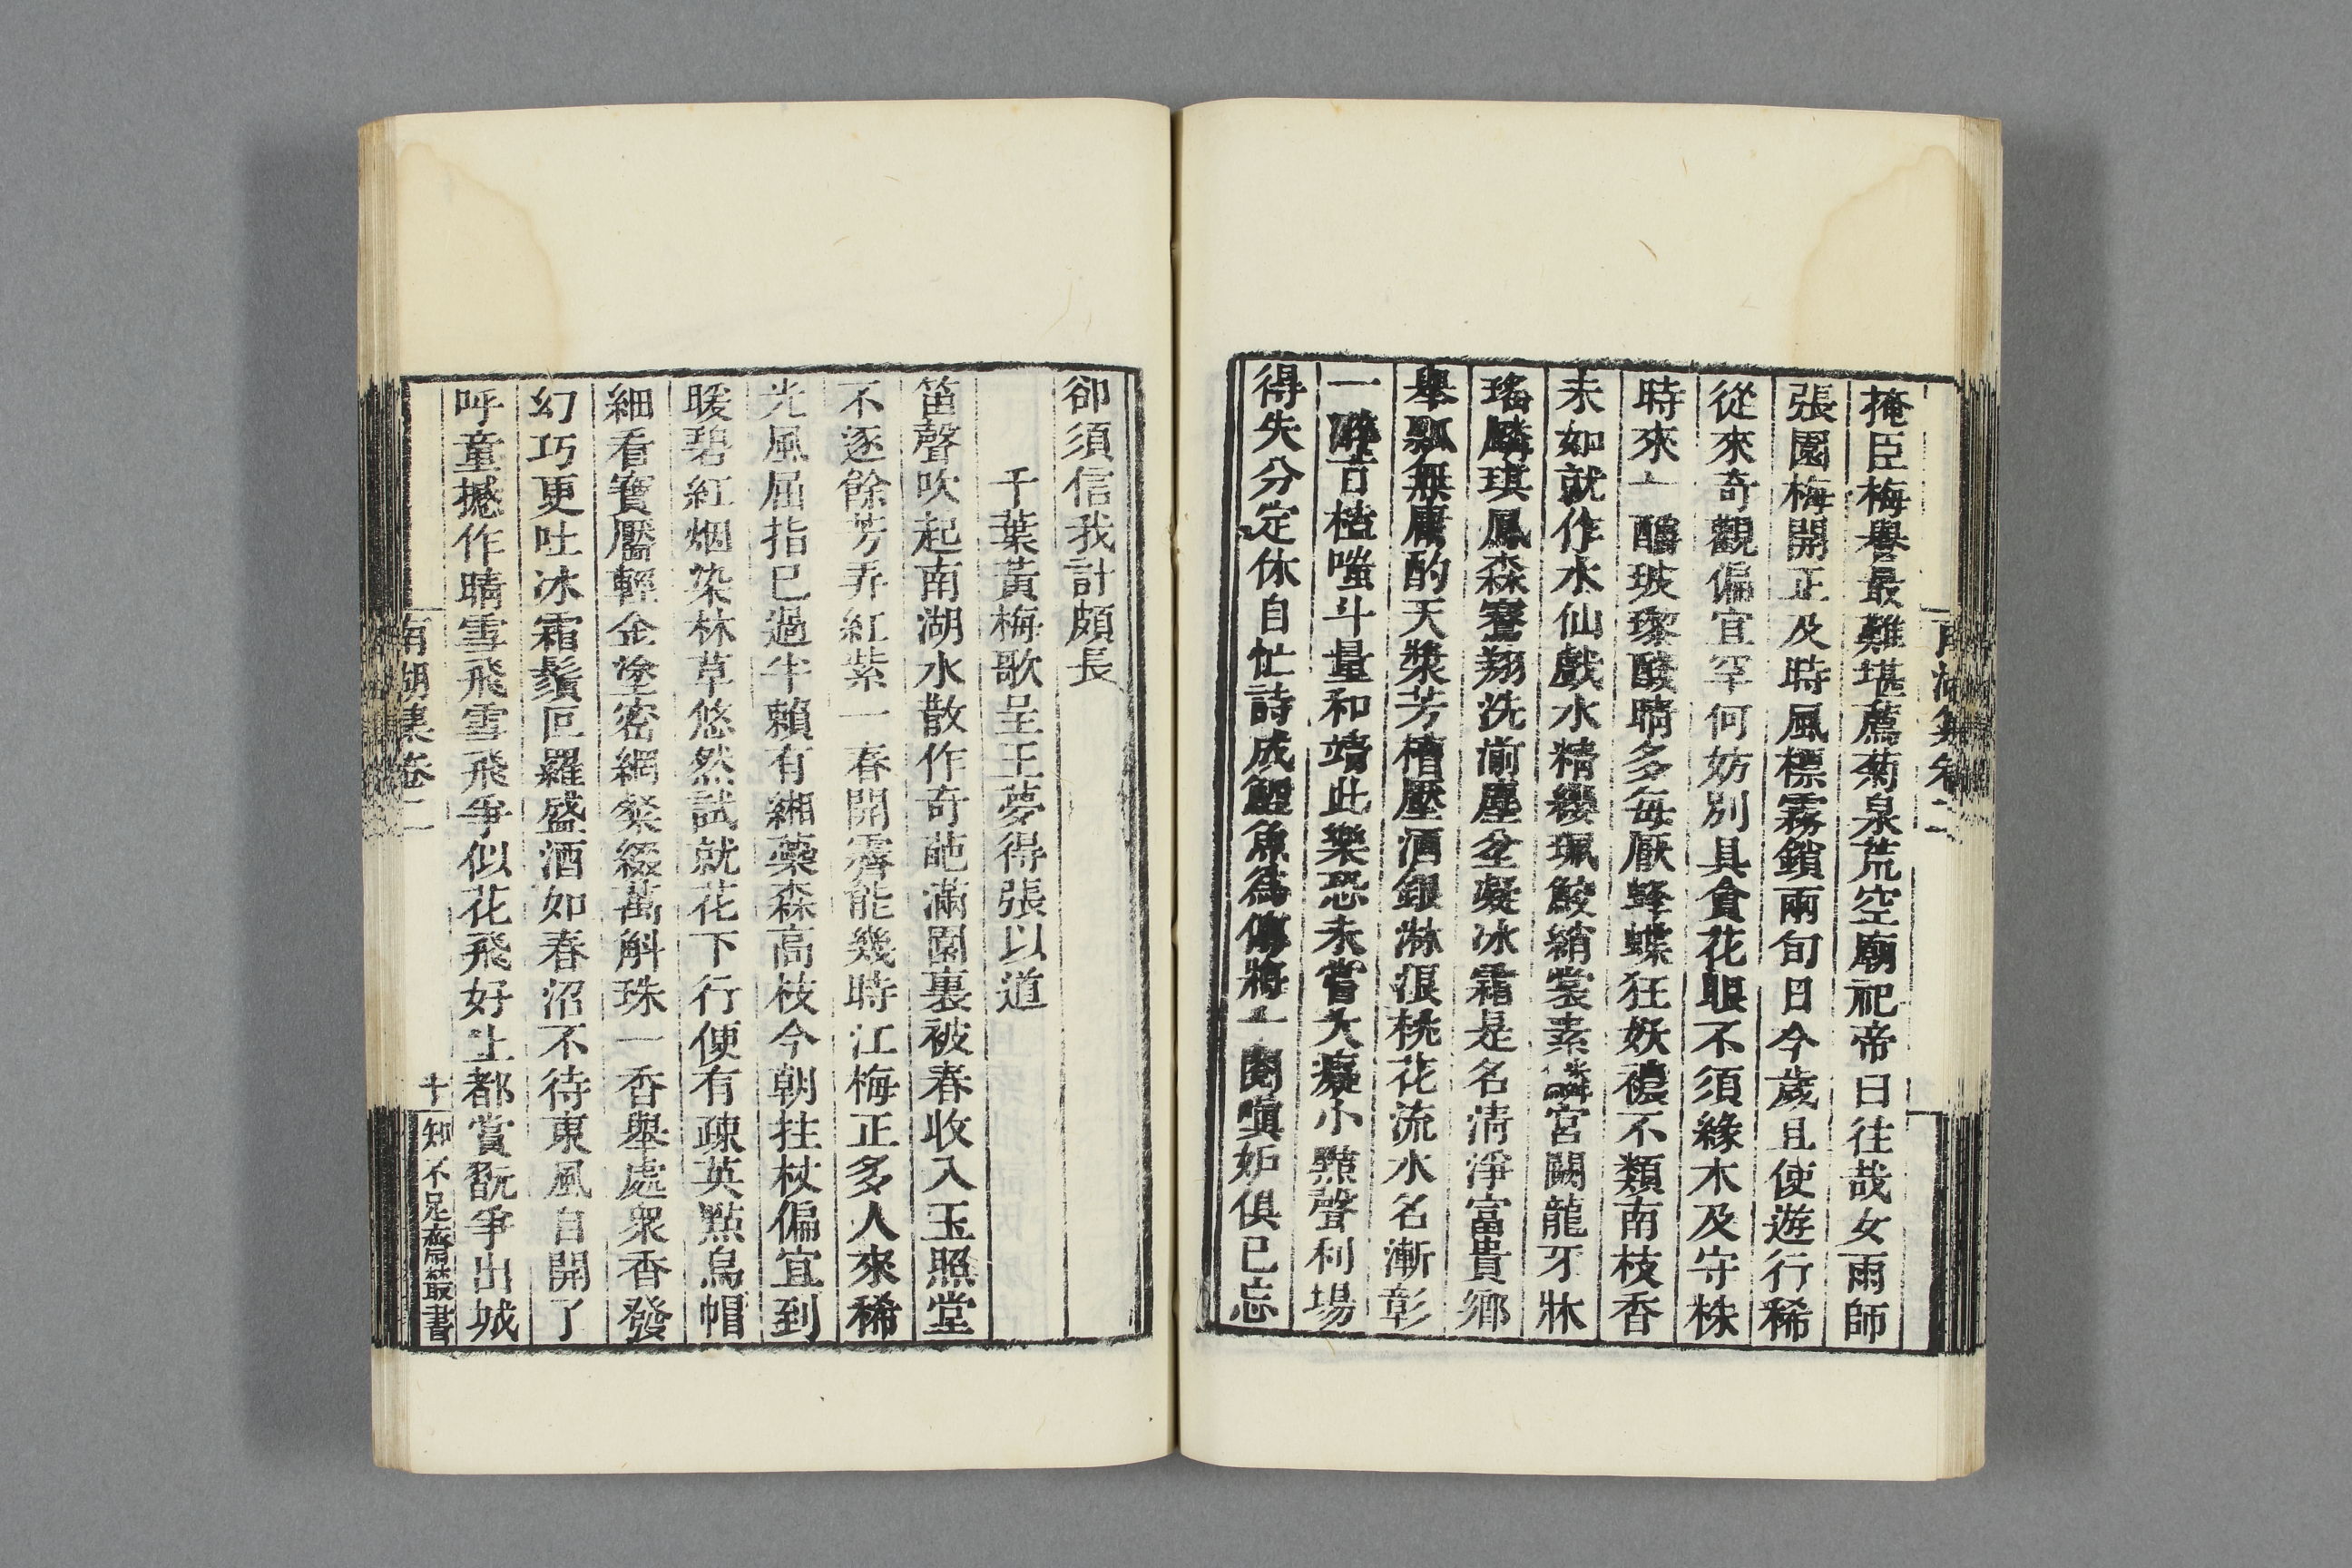 南湖集卷二
掩臣梅譽最難堪薦菊泉荒空廟祀帝曰往哉女雨師
張園梅開正及時風標霧鎖兩旬日今歲且使遊行稀
從來奇觀偏宜罕何妨別具貪花眼不須緣木及守株
時來一酹玻瓈醆晴多每厭蜂蝶狂妖穠不類南枝香
未如就作水仙戲水精纓珮鮫綃裳素鱗宮闕龍牙牀
瑤麟琪鳳森騫翔洗湔塵坌凝冰霜是名清淨富貴鄉
舉瓢無庸酌天漿芳槽壓酒銀淋浪桃花流水名漸彰
一醉百榼嗤斗量和靖此樂恐未嘗大癡小黠聲利場
得失分定休自忙詩成鯉魚為傳將一闋嗔妒俱已忘
卻須信我計頗長
千葉黃梅歌呈王夢得張以道
笛聲吹起南湖水散作奇葩滿園裏被春收入玉照堂
不逐餘芳弄紅紫一春開霽能幾時江梅正多人來稀
光風屈指已過半賴有緗蘂森高枝今朝拄杖偏宜到
暖碧紅烟染林草悠然試就花下行便有疎英點烏帽
細看寶靨輕金塗密網粲綴萬斛珠一香舉處眾香發
幻巧更吐冰霜鬚叵羅盛酒如春沼不待東風自開了
呼童撼作晴雪飛雪飛爭似花飛好上都賞翫爭出城
南湖集卷二
十
知不足齋叢書